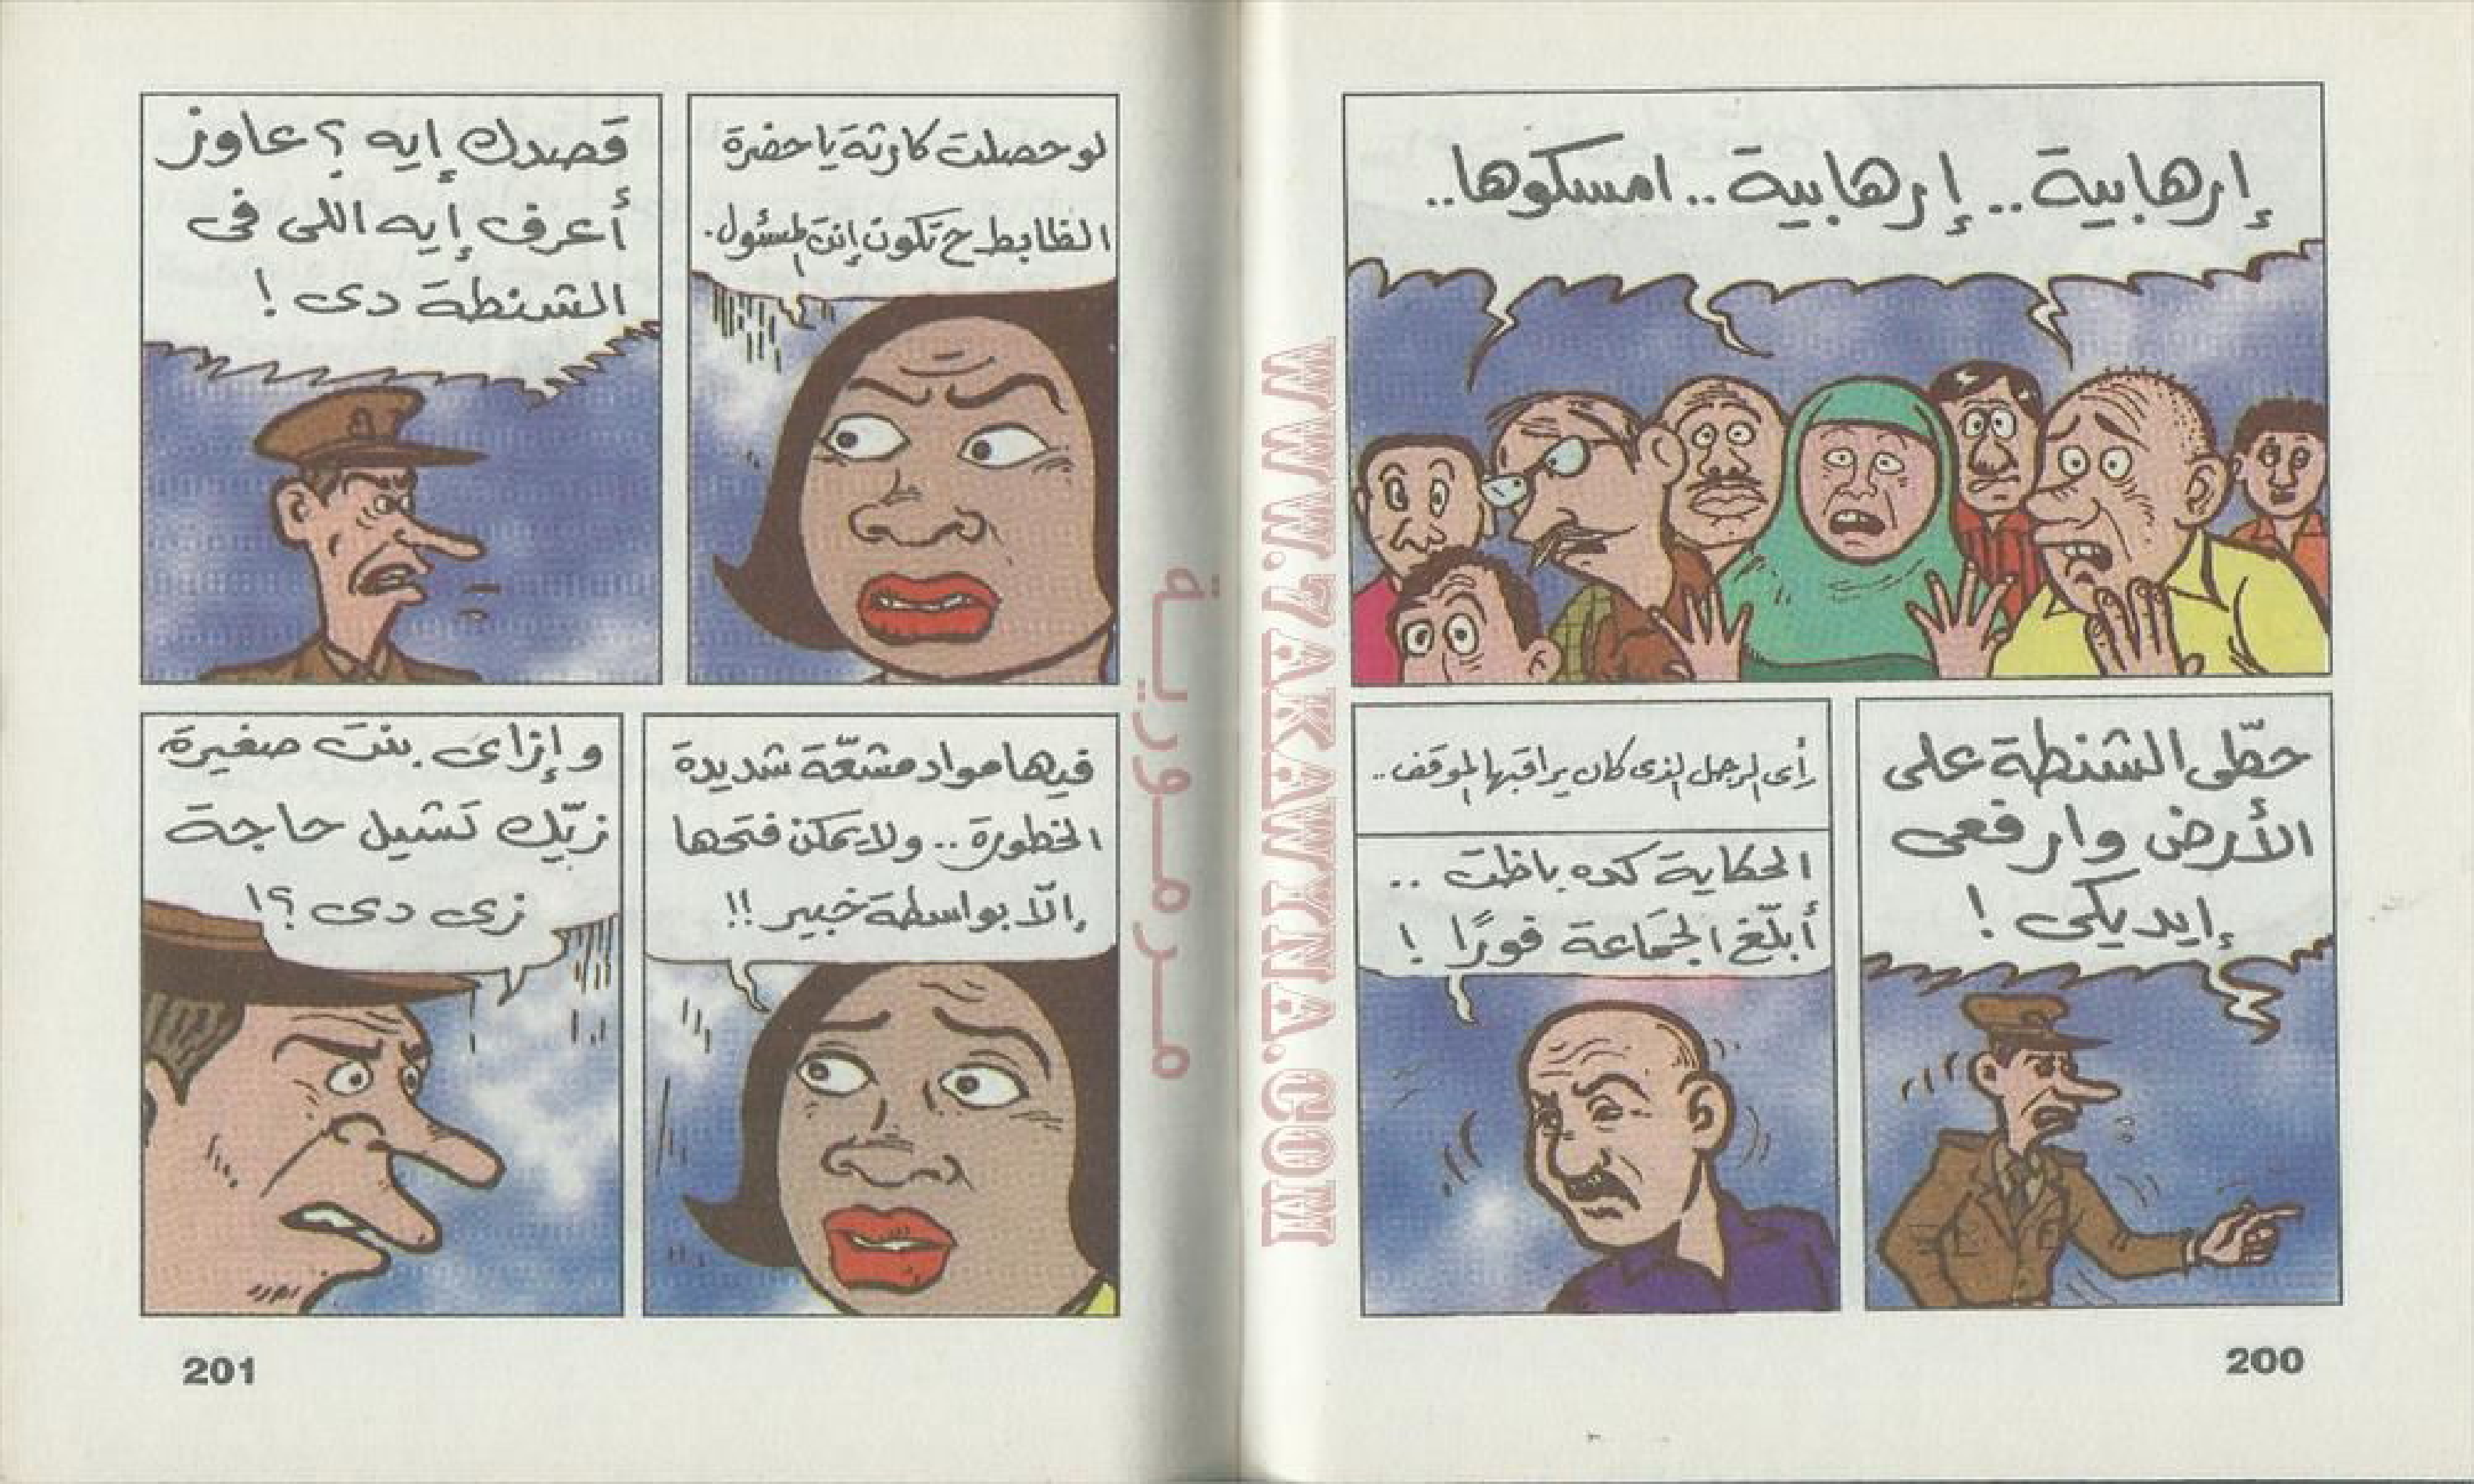 إرهابية.. إرهابية.. امسكوها..
حطّى الشنطة على
الأرض وارفعى
إيديكى !
رأى الرجل الذى كان يراقبها الموقف..
الحكاية كده باظت ..
أبلّغ الجماعة فورًا !
200
لو حصلت كارثة يا حضرة
الظابط ح تكون إنت المسئول.
قصدك إيه ؟ عاوز
أعرف إيه اللى فى
الشنطة دى !
فيها مواد مشعّة شديدة
الخطورة .. ولا يمكن فتحها
إلّا بواسطة خبير !!
وإزاى بنت صغيرة
زيّك تشيل حاجة
زى دى ؟!
201
WWW.7AKAWYNA.COM
مرمورية